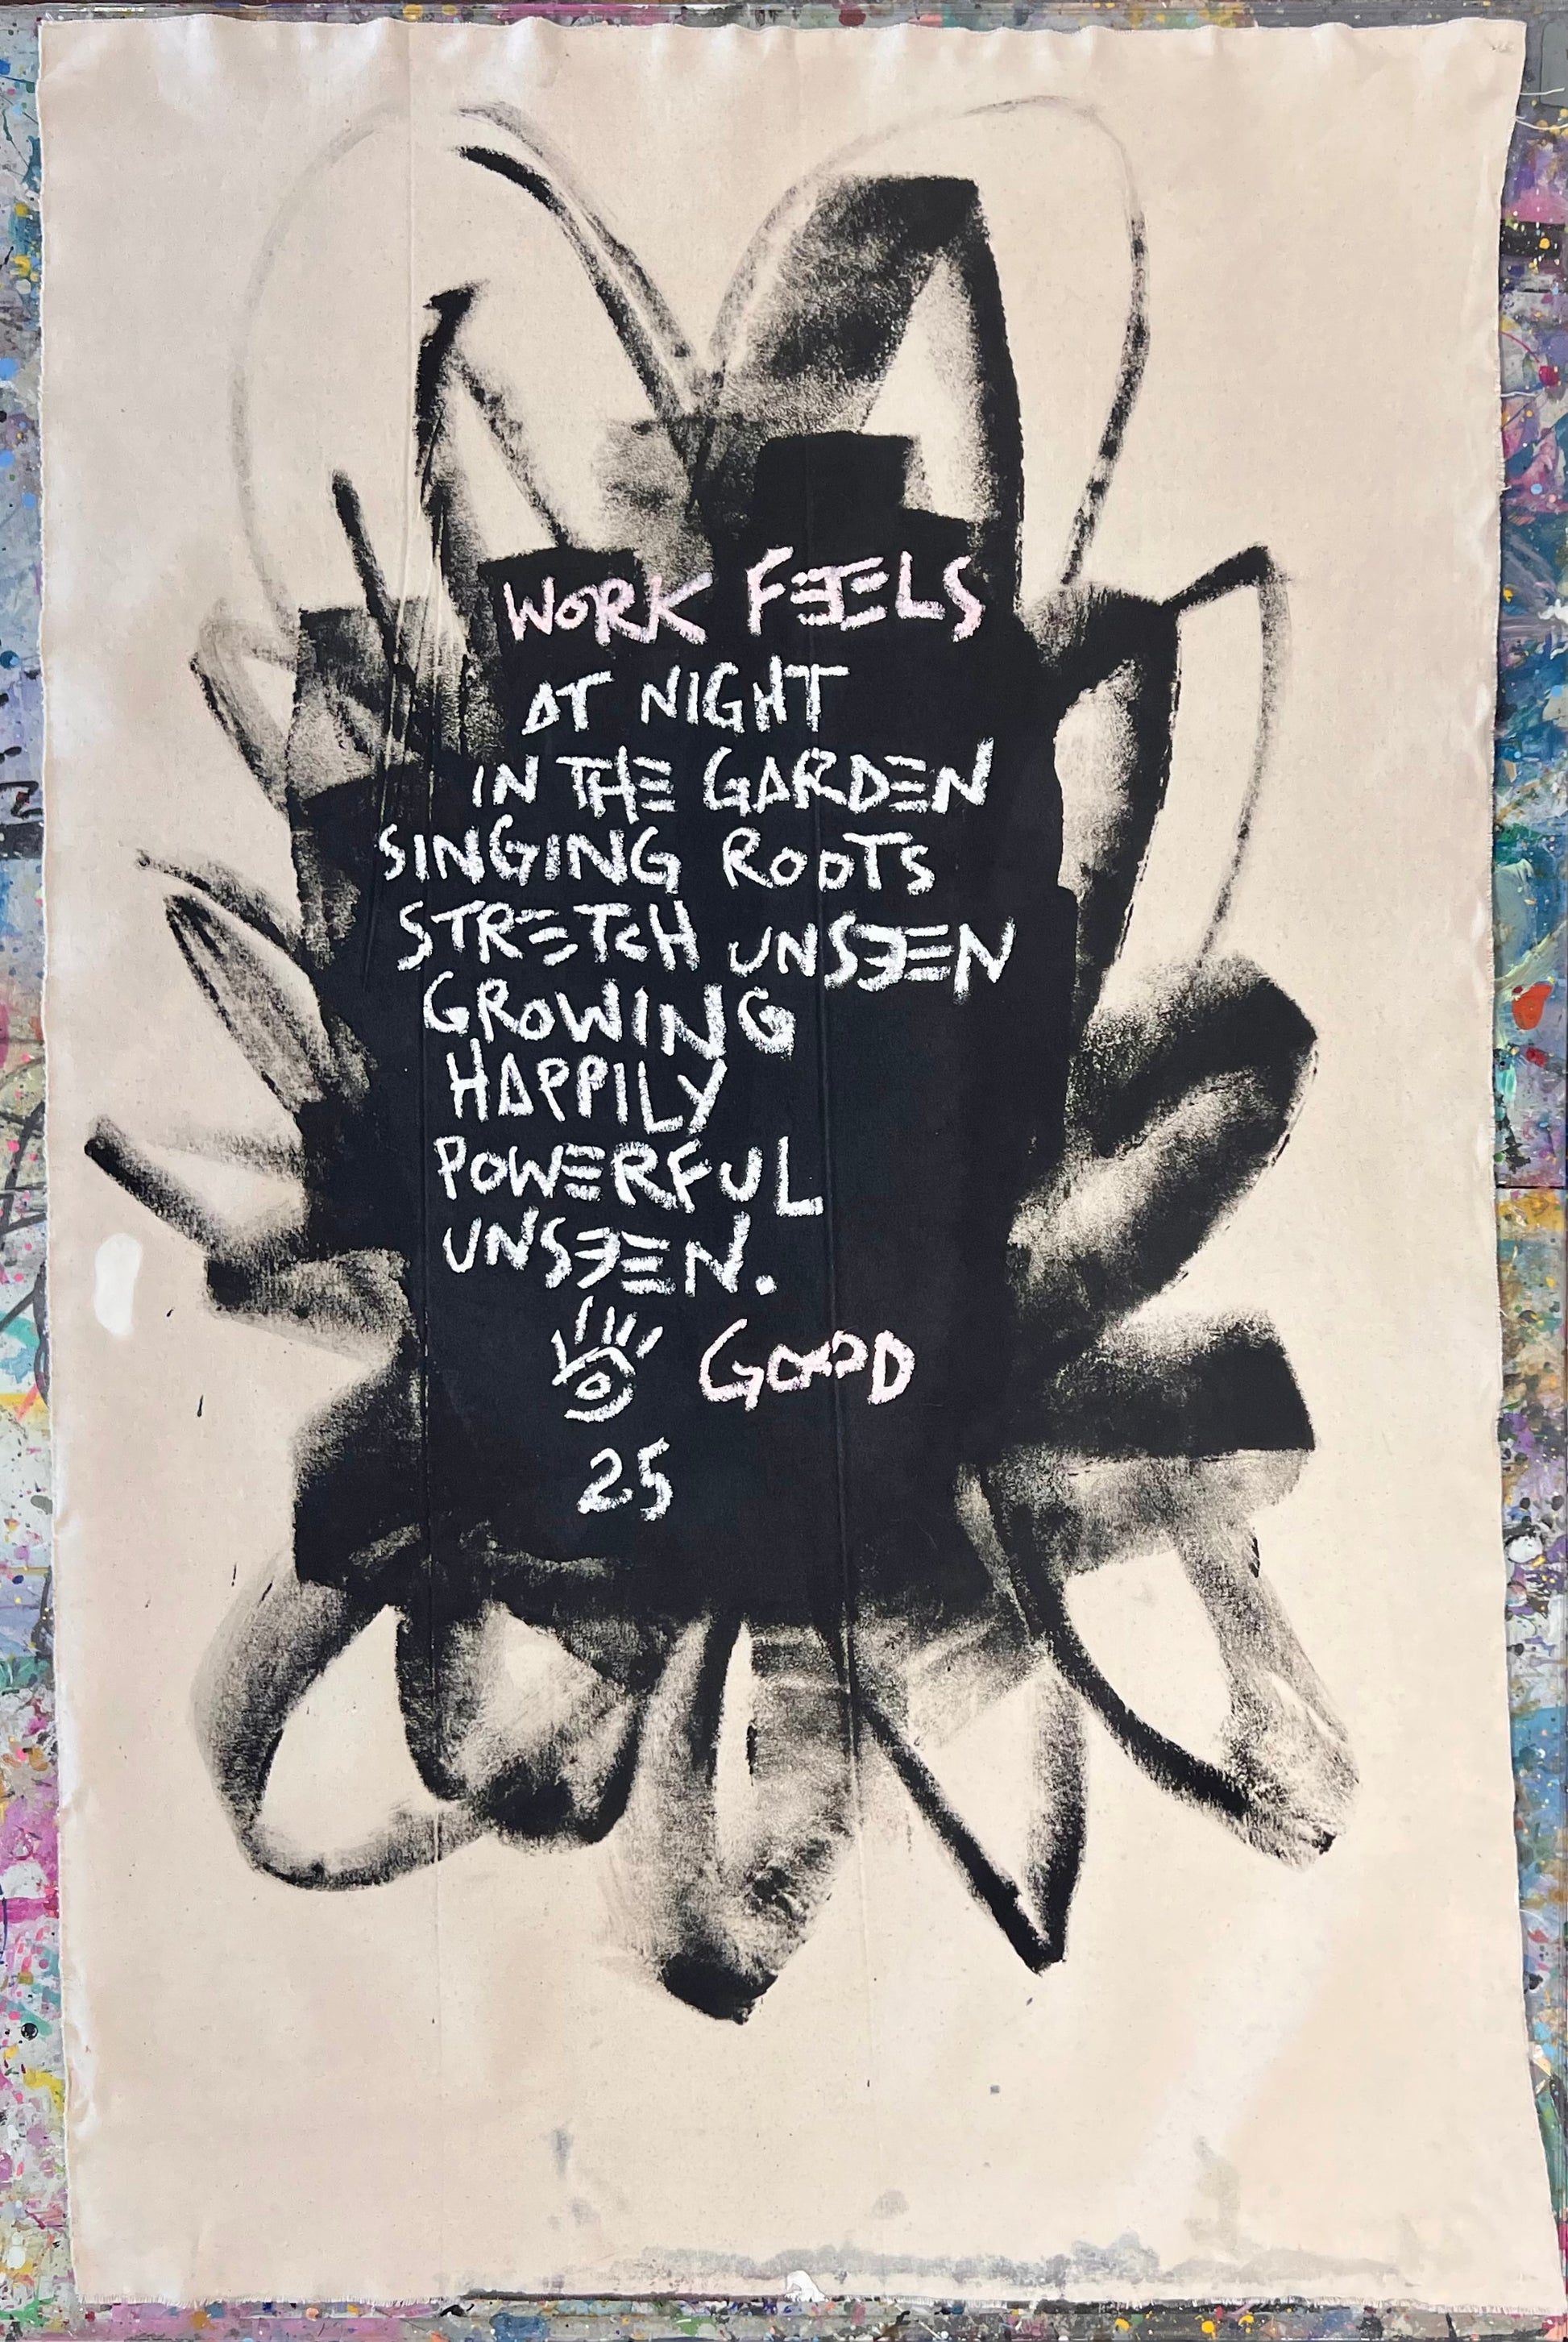 WORK FEELS
AT NIGHT
IN THE GARDEN
SINGING ROOTS
STRETCH UNSEEN
GROWING
HAPPILY
POWERFUL
UNSEEN.
GOOD
25